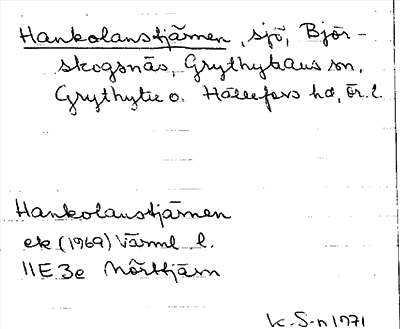 Hankolanstjärnen, sjö, Björ-
skogsnäs, Grythyttans sn,
Grythytte o. Hällefors hd, ör. l.
Hankolanstjärnen
ek (1969) Värml l.
11E 3e Mörttjärn
K. S-n 1971